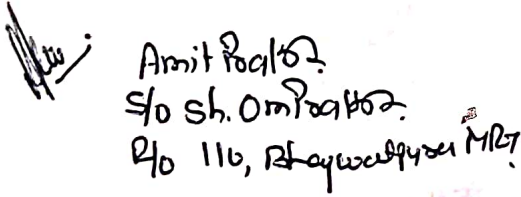 Amit Prakash
S/o Sh. Om Prakash
R/o 110, Bhagwatpura MRT